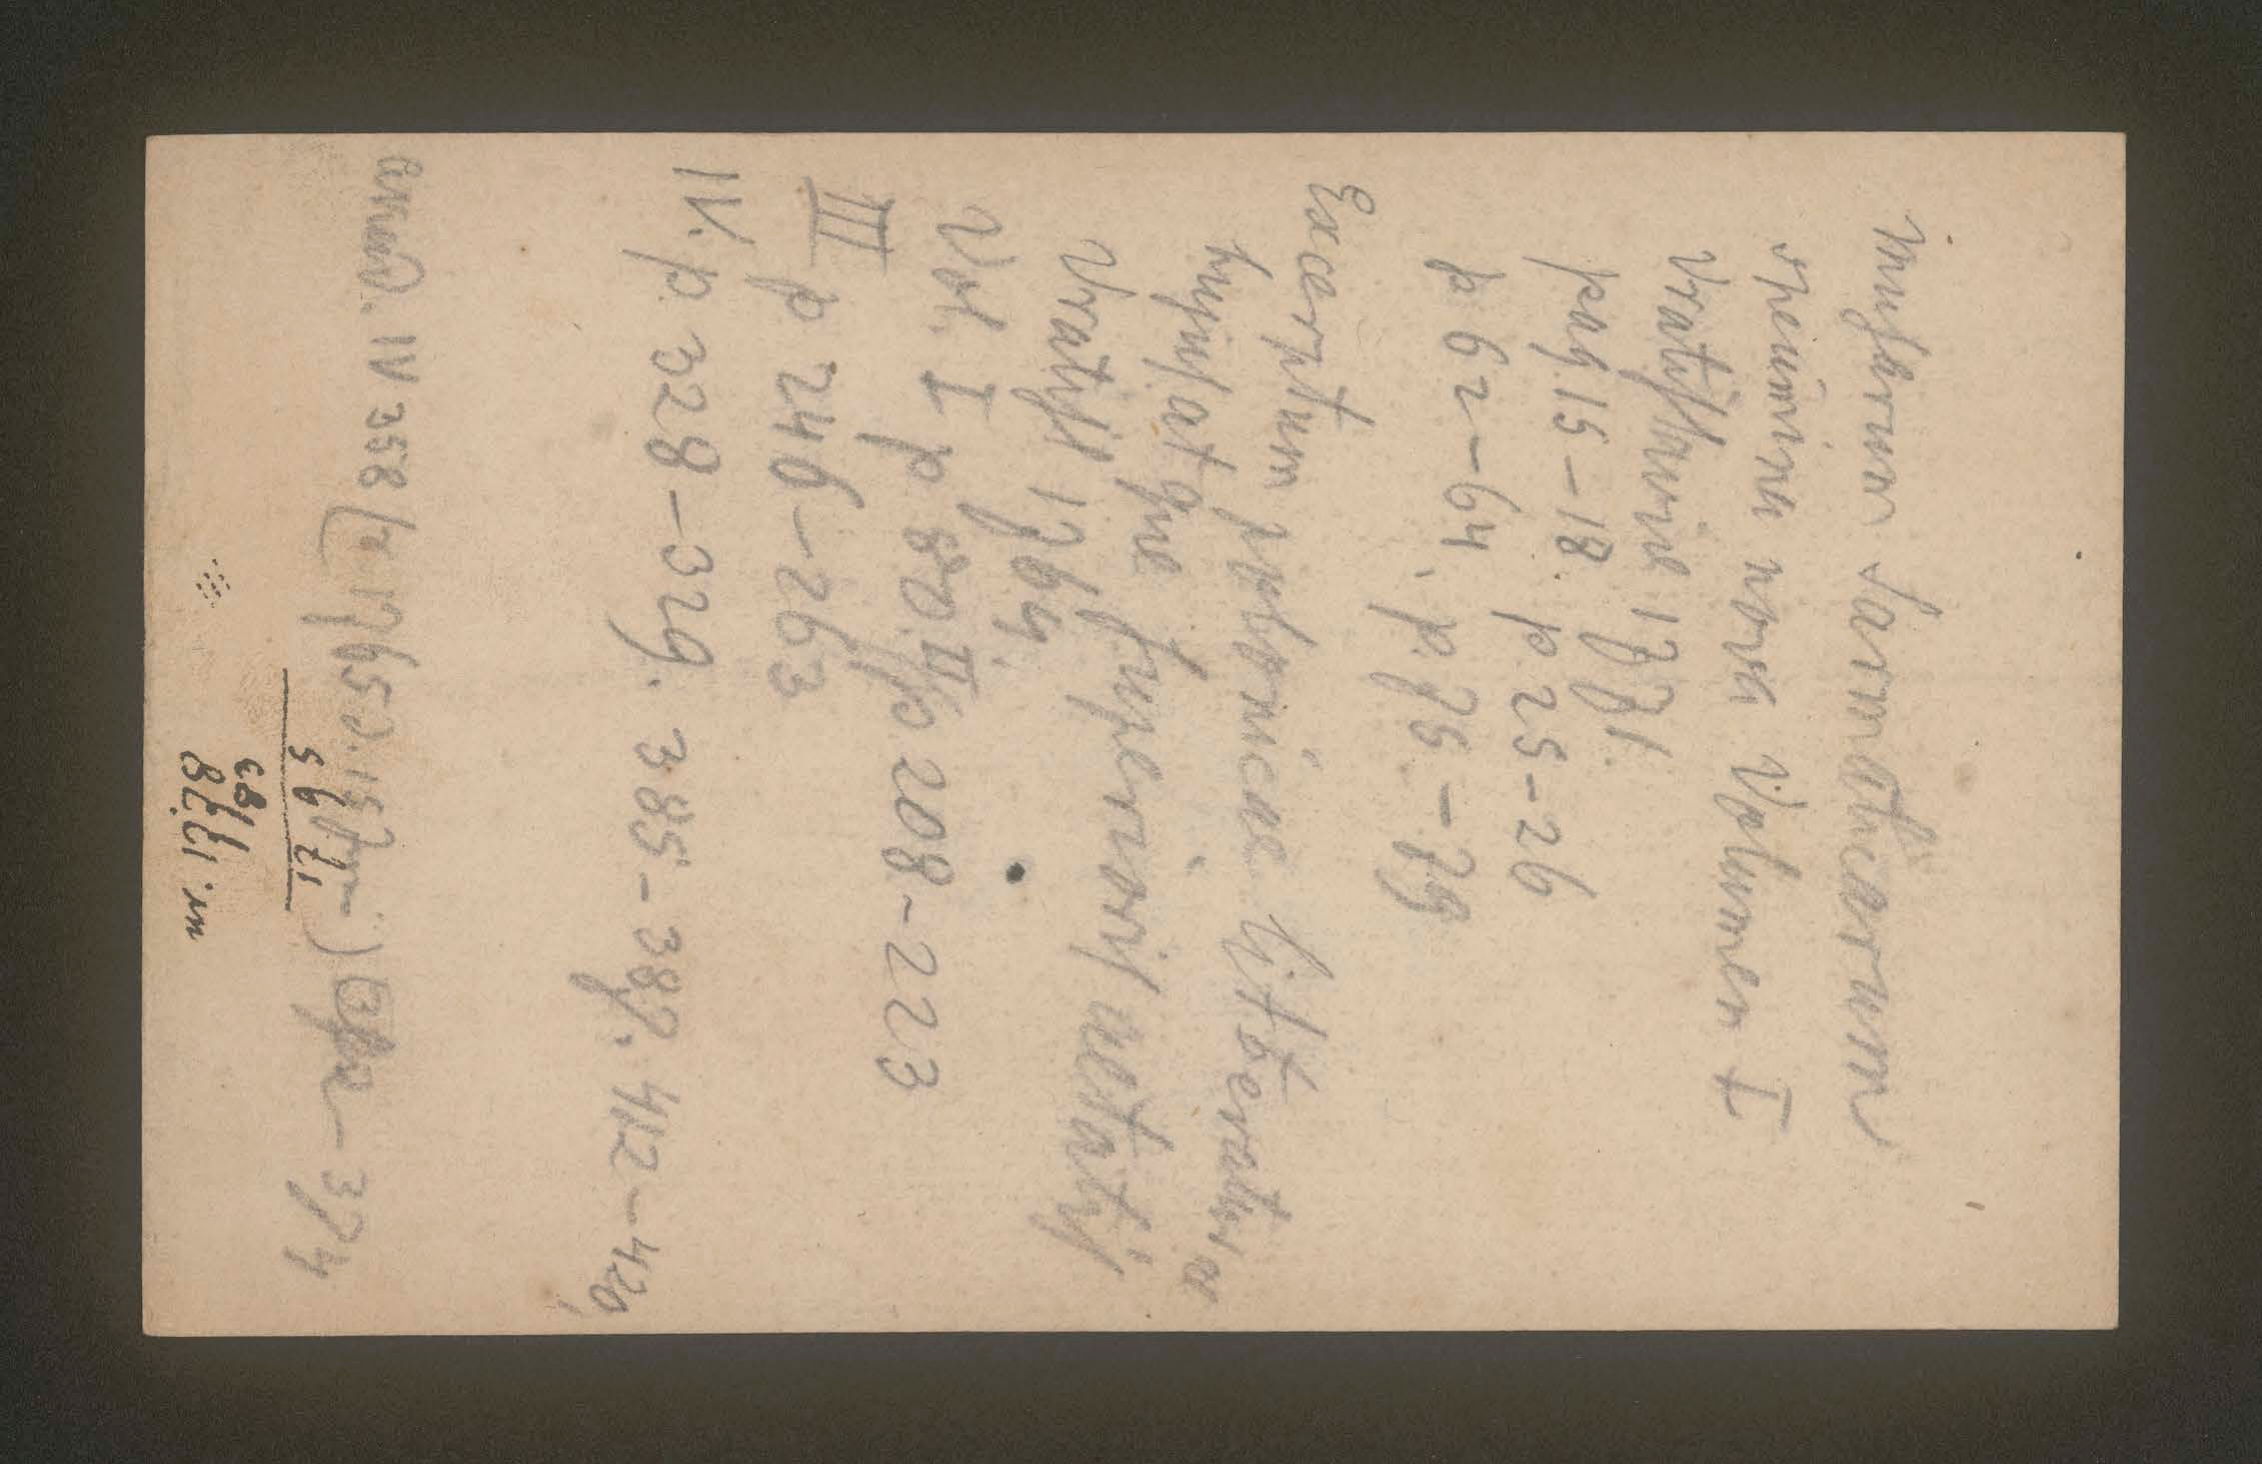 musarum Sarmaticarum
specimina nova Volumen I
Vratislaviae 1771.
pag 15–18. p 25–26
p 62–64, p. 75–79
Excerptum polonicae litteraturae
hujus at que superioris aetatis
Vratisl 1764.
Vol. I p 80. II p 208–223
III p 246–263
IV. p. 328–329. 385–387. 412–420,
IV 358 1765 374
1765
m. 1778